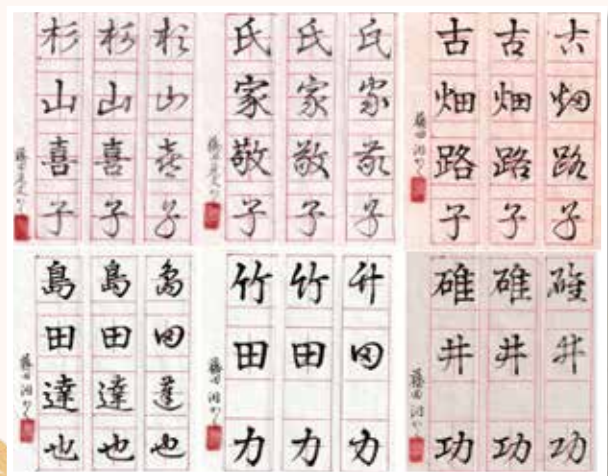 杉山喜子
杉山喜子
杉山喜子
藤田
氏家敬子
氏家敬子
氏家敬子
藤田
古畑路子
古畑路子
古畑路子
藤田
島田達也
島田達也
島田達也
藤田
竹田力
竹田力
竹田力
藤田
碓井功
碓井功
碓井功
藤田